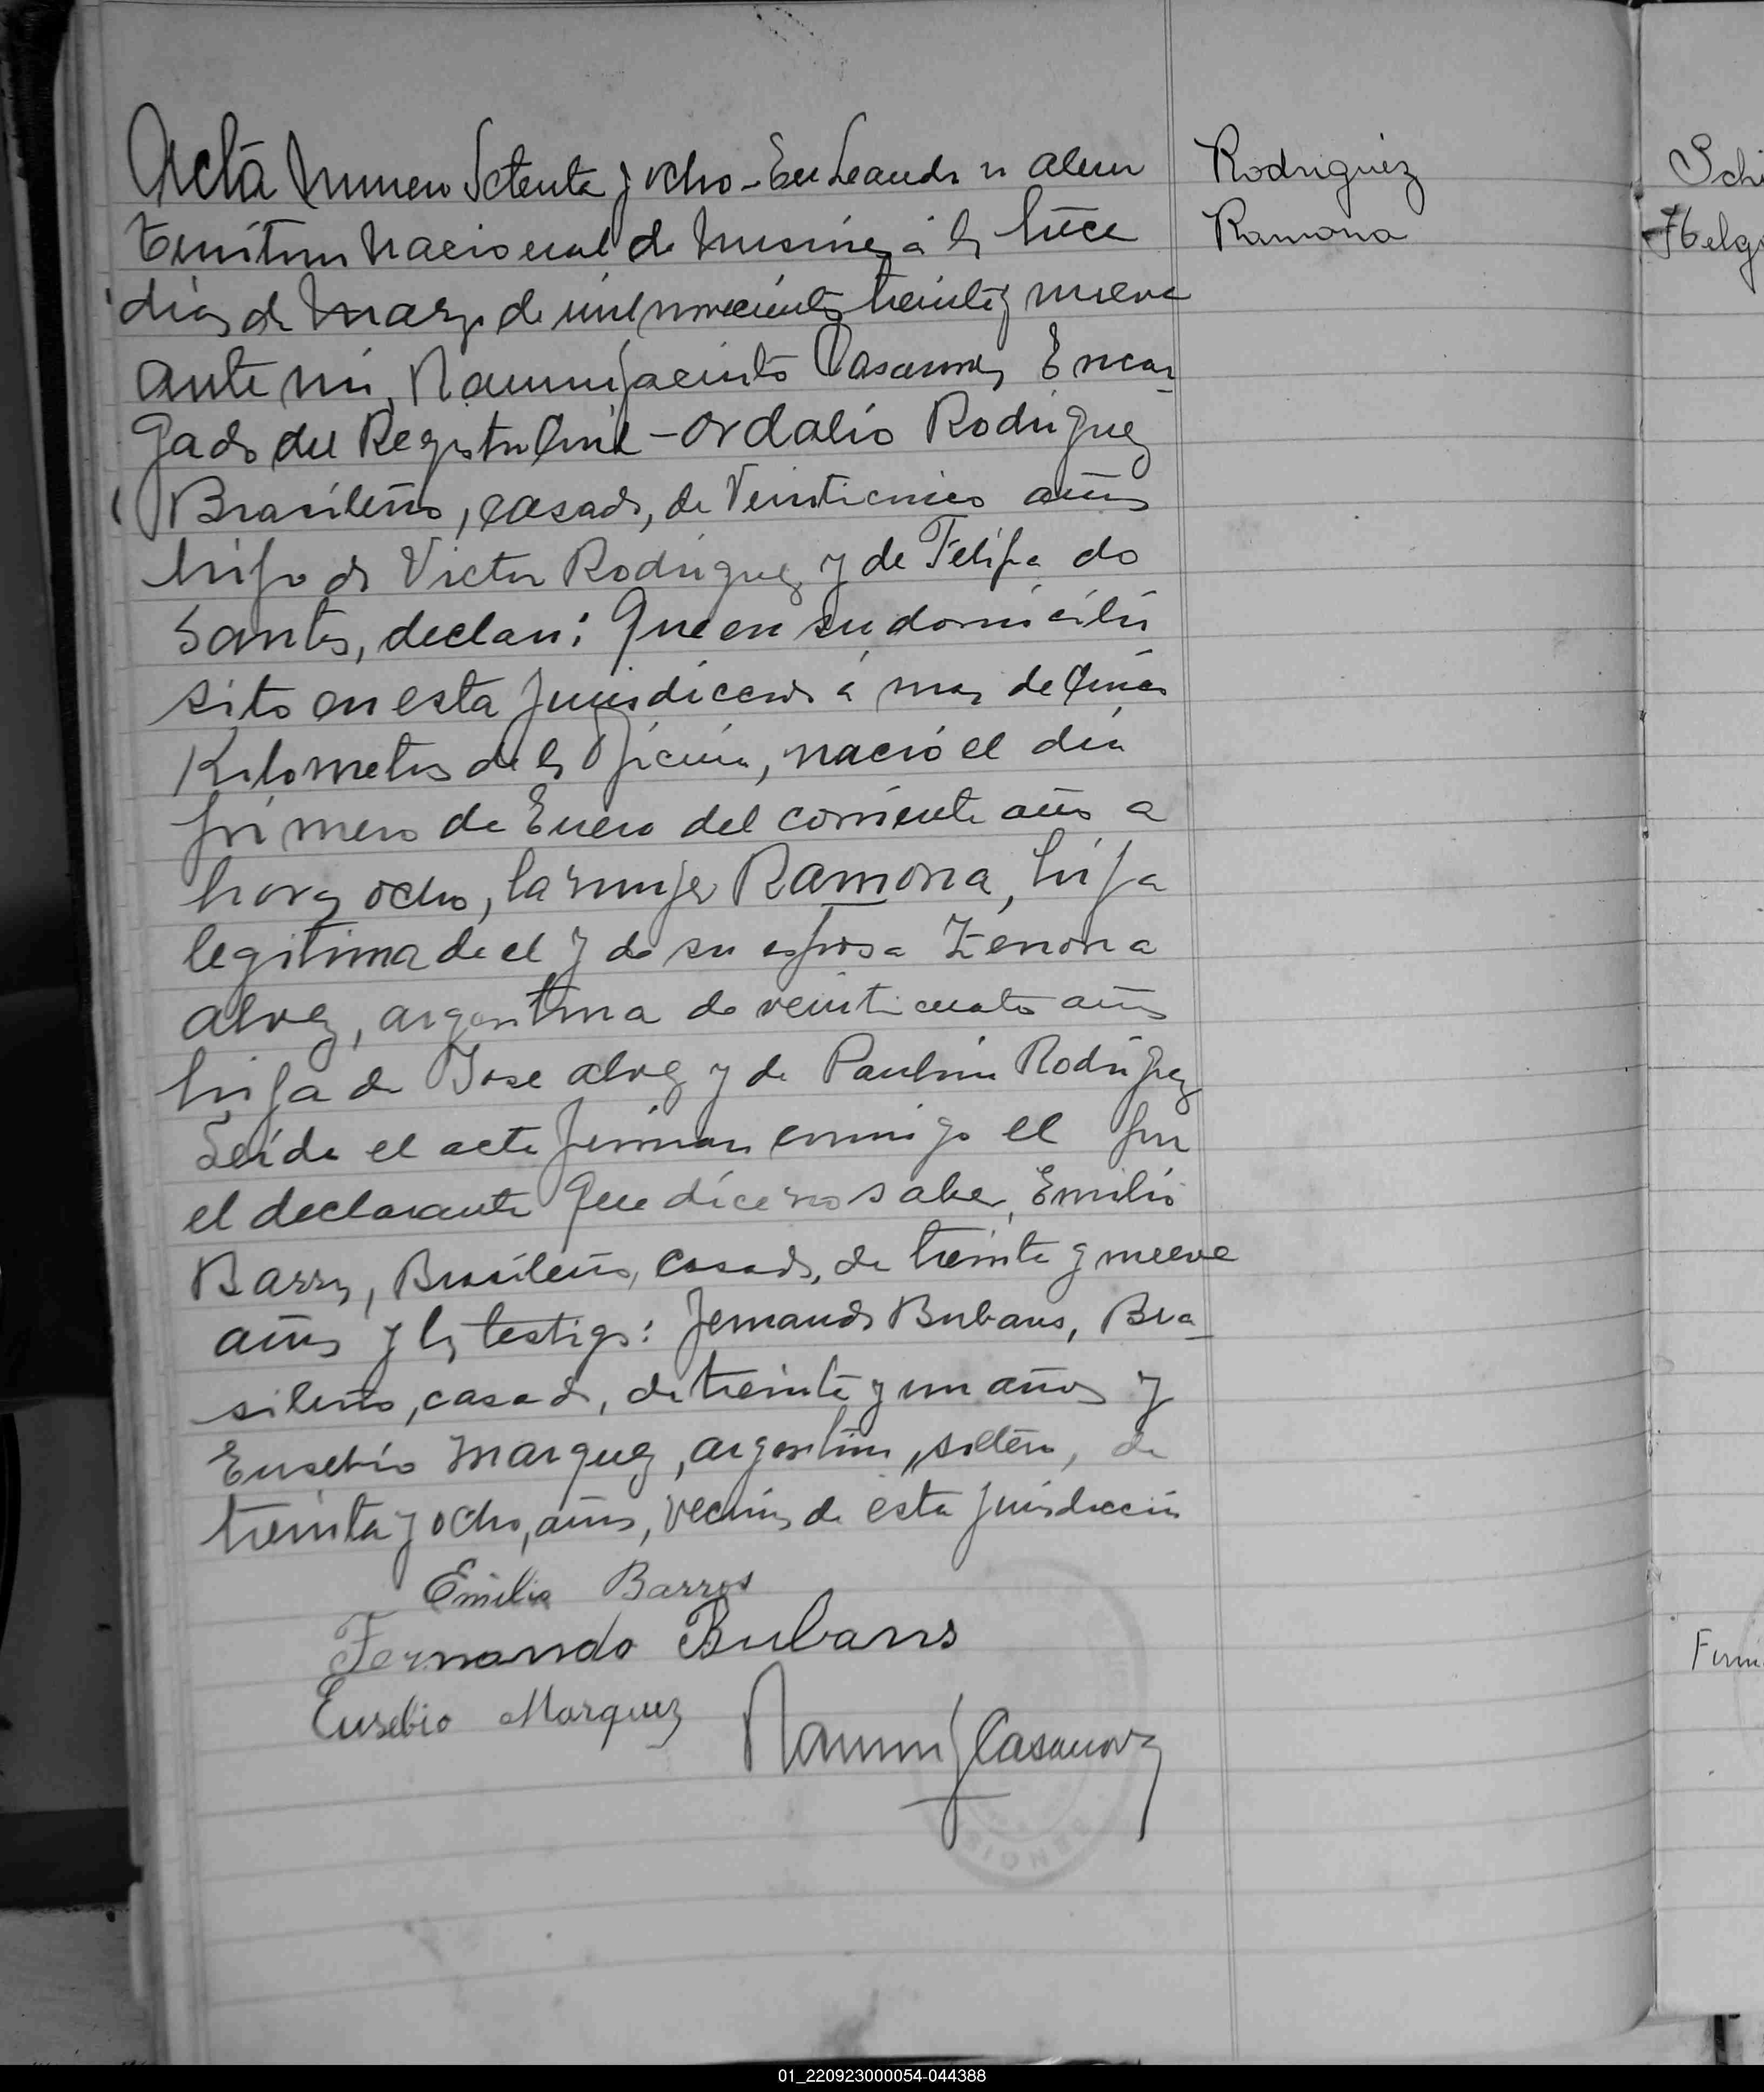 Acta Numero Setenta y ocho - En Leandro N Alem
Territorio Nacional de Misiones á los trece
dias de Marzo de mil novecientos treinta y nueve
Ante mi, Ramon Jacinto Casanova, Encar-
gado del Registro Civil - Ordalio Rodriguez
Brasileño, casado, de Veinticinco años
hijo de Victor Rodriguez y de Felipa do
Santos, declaró: Que en su domicilio
sito en esta Jurisdiccion á mas de Cinco
Kilometros de la Oficina, nació el dia
primero de Enero del corriente año a
horas ocho, la mujer Ramona, hija
legitima de el y de su esposa Zenona
Alvez, argentina de veinticuatro años
hija de Jose Alvez y de Paulina Rodriguez
Leida el acta firman conmigo el por
el declarante que dice no saber, Emilio
Barros, Brasileño, casado, de treinta y nueve
años y los testigos: Fernando Bubans, Bra-
sileño, casado, de treinta y un años y
Eusebio Marquez, argentino, soltero, de
treinta y ocho, años, vecinos de esta jurisdiccion
Emilio Barros
Fernando Bubans
Eusebio Marquez
Ramon J Casanova
Rodriguez
Ramona
Schi
Helg
Firm
01_220923000054-044388